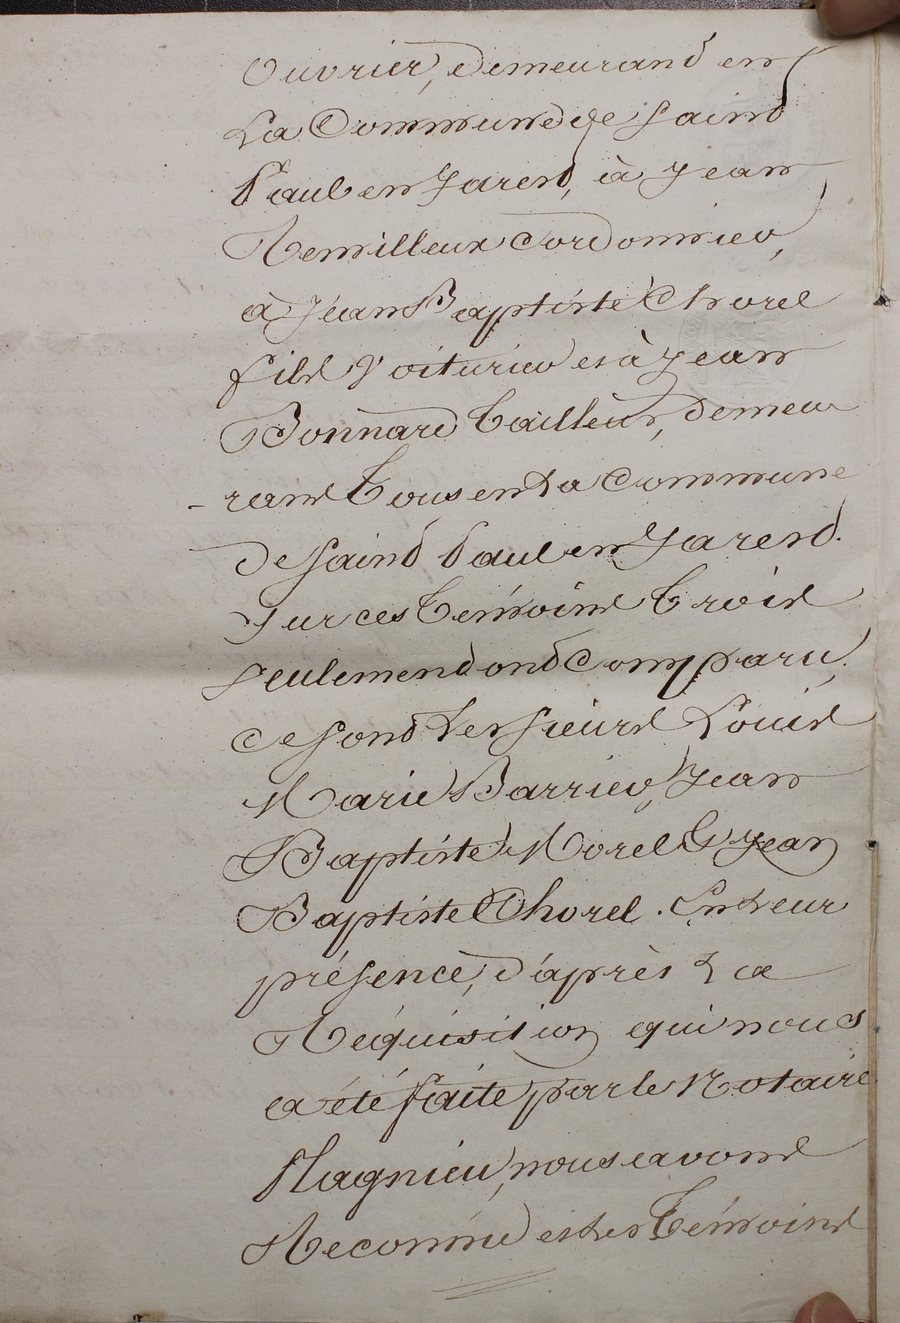 Ouvrier, demeurant en
La Commune de Saint
Paul en Jarest, à Jean
Remilleux Cordonnier,
à Jean Baptiste Chorel
fils Voiturier et à Jean
Bonnard Tailleur, demeu
- rant Tous en La Commune
de Saint Paul en Jarest.
Sur ces Témoins Trois
seulement ont Comparu,
ce sont Les Sieurs Louis
Marie Barrier, Jean
Baptiste Morel & Jean
Baptiste Chorel. En Leur
présence, d'après La
Réquisition qui nous
a été faite par le Notaire
Magnieu, nous avons
Reconnu et Les Témoins